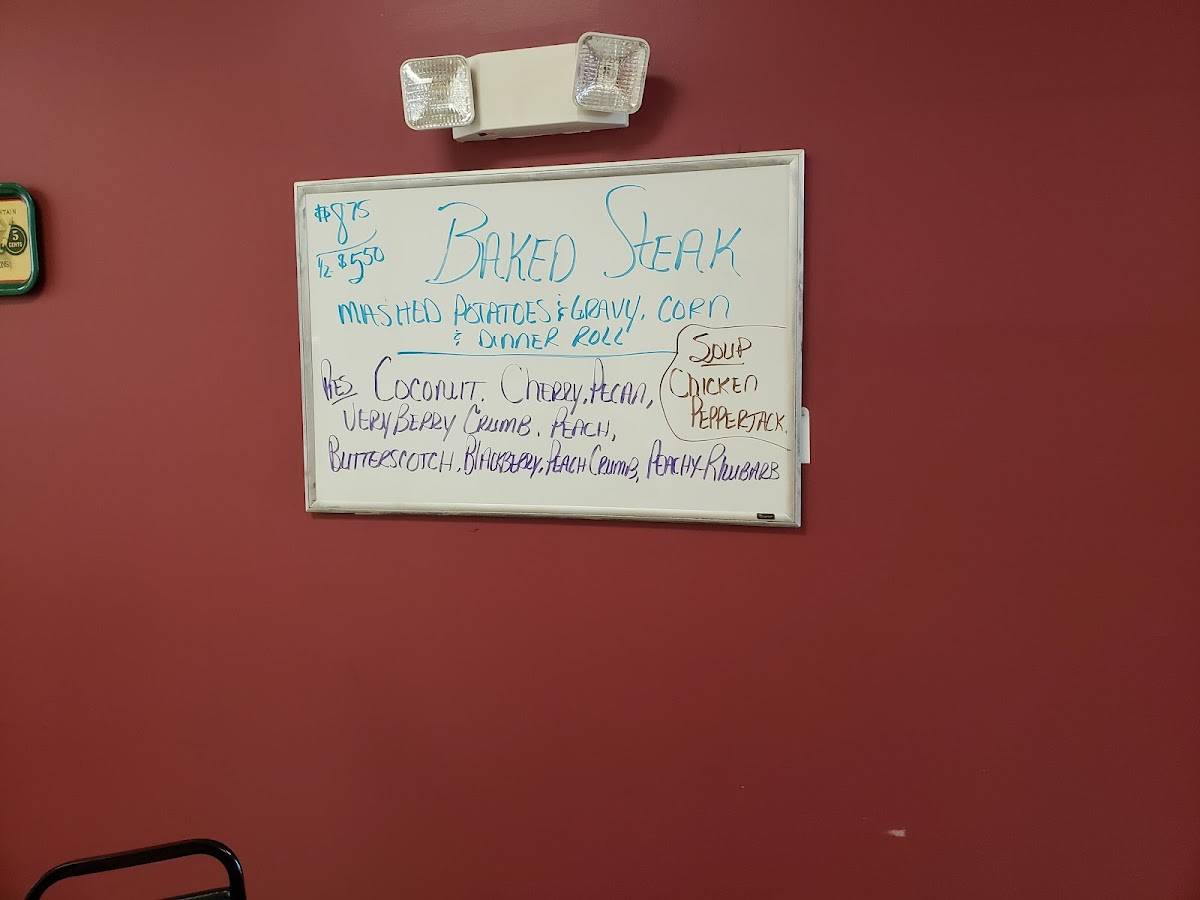 $8.75
1/2 $5.50
BAKED STEAK
MASHED POTATOES & GRAVY, CORN
& DINNER ROLL
SOUP
CHICKEN
PEPPERJACK.
PIES COCONUT. CHERRY, PECAN,
VERY BERRY CRUMB. PEACH,
BUTTERSCOTCH, BLACKBERRY, PEACH CRUMB, PEACHY-RHUBARB
5
CENTS